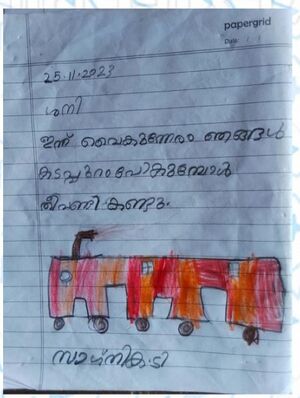 papergrid
Date: / /
25.11.2023
ശനി
ഇന്ന് വൈകുന്നേരം ഞങ്ങൾ
കടപ്പുറംപോകുമ്പോൾ
തീവണ്ടി കണ്ടു.
സാഗ്നിക.ടി